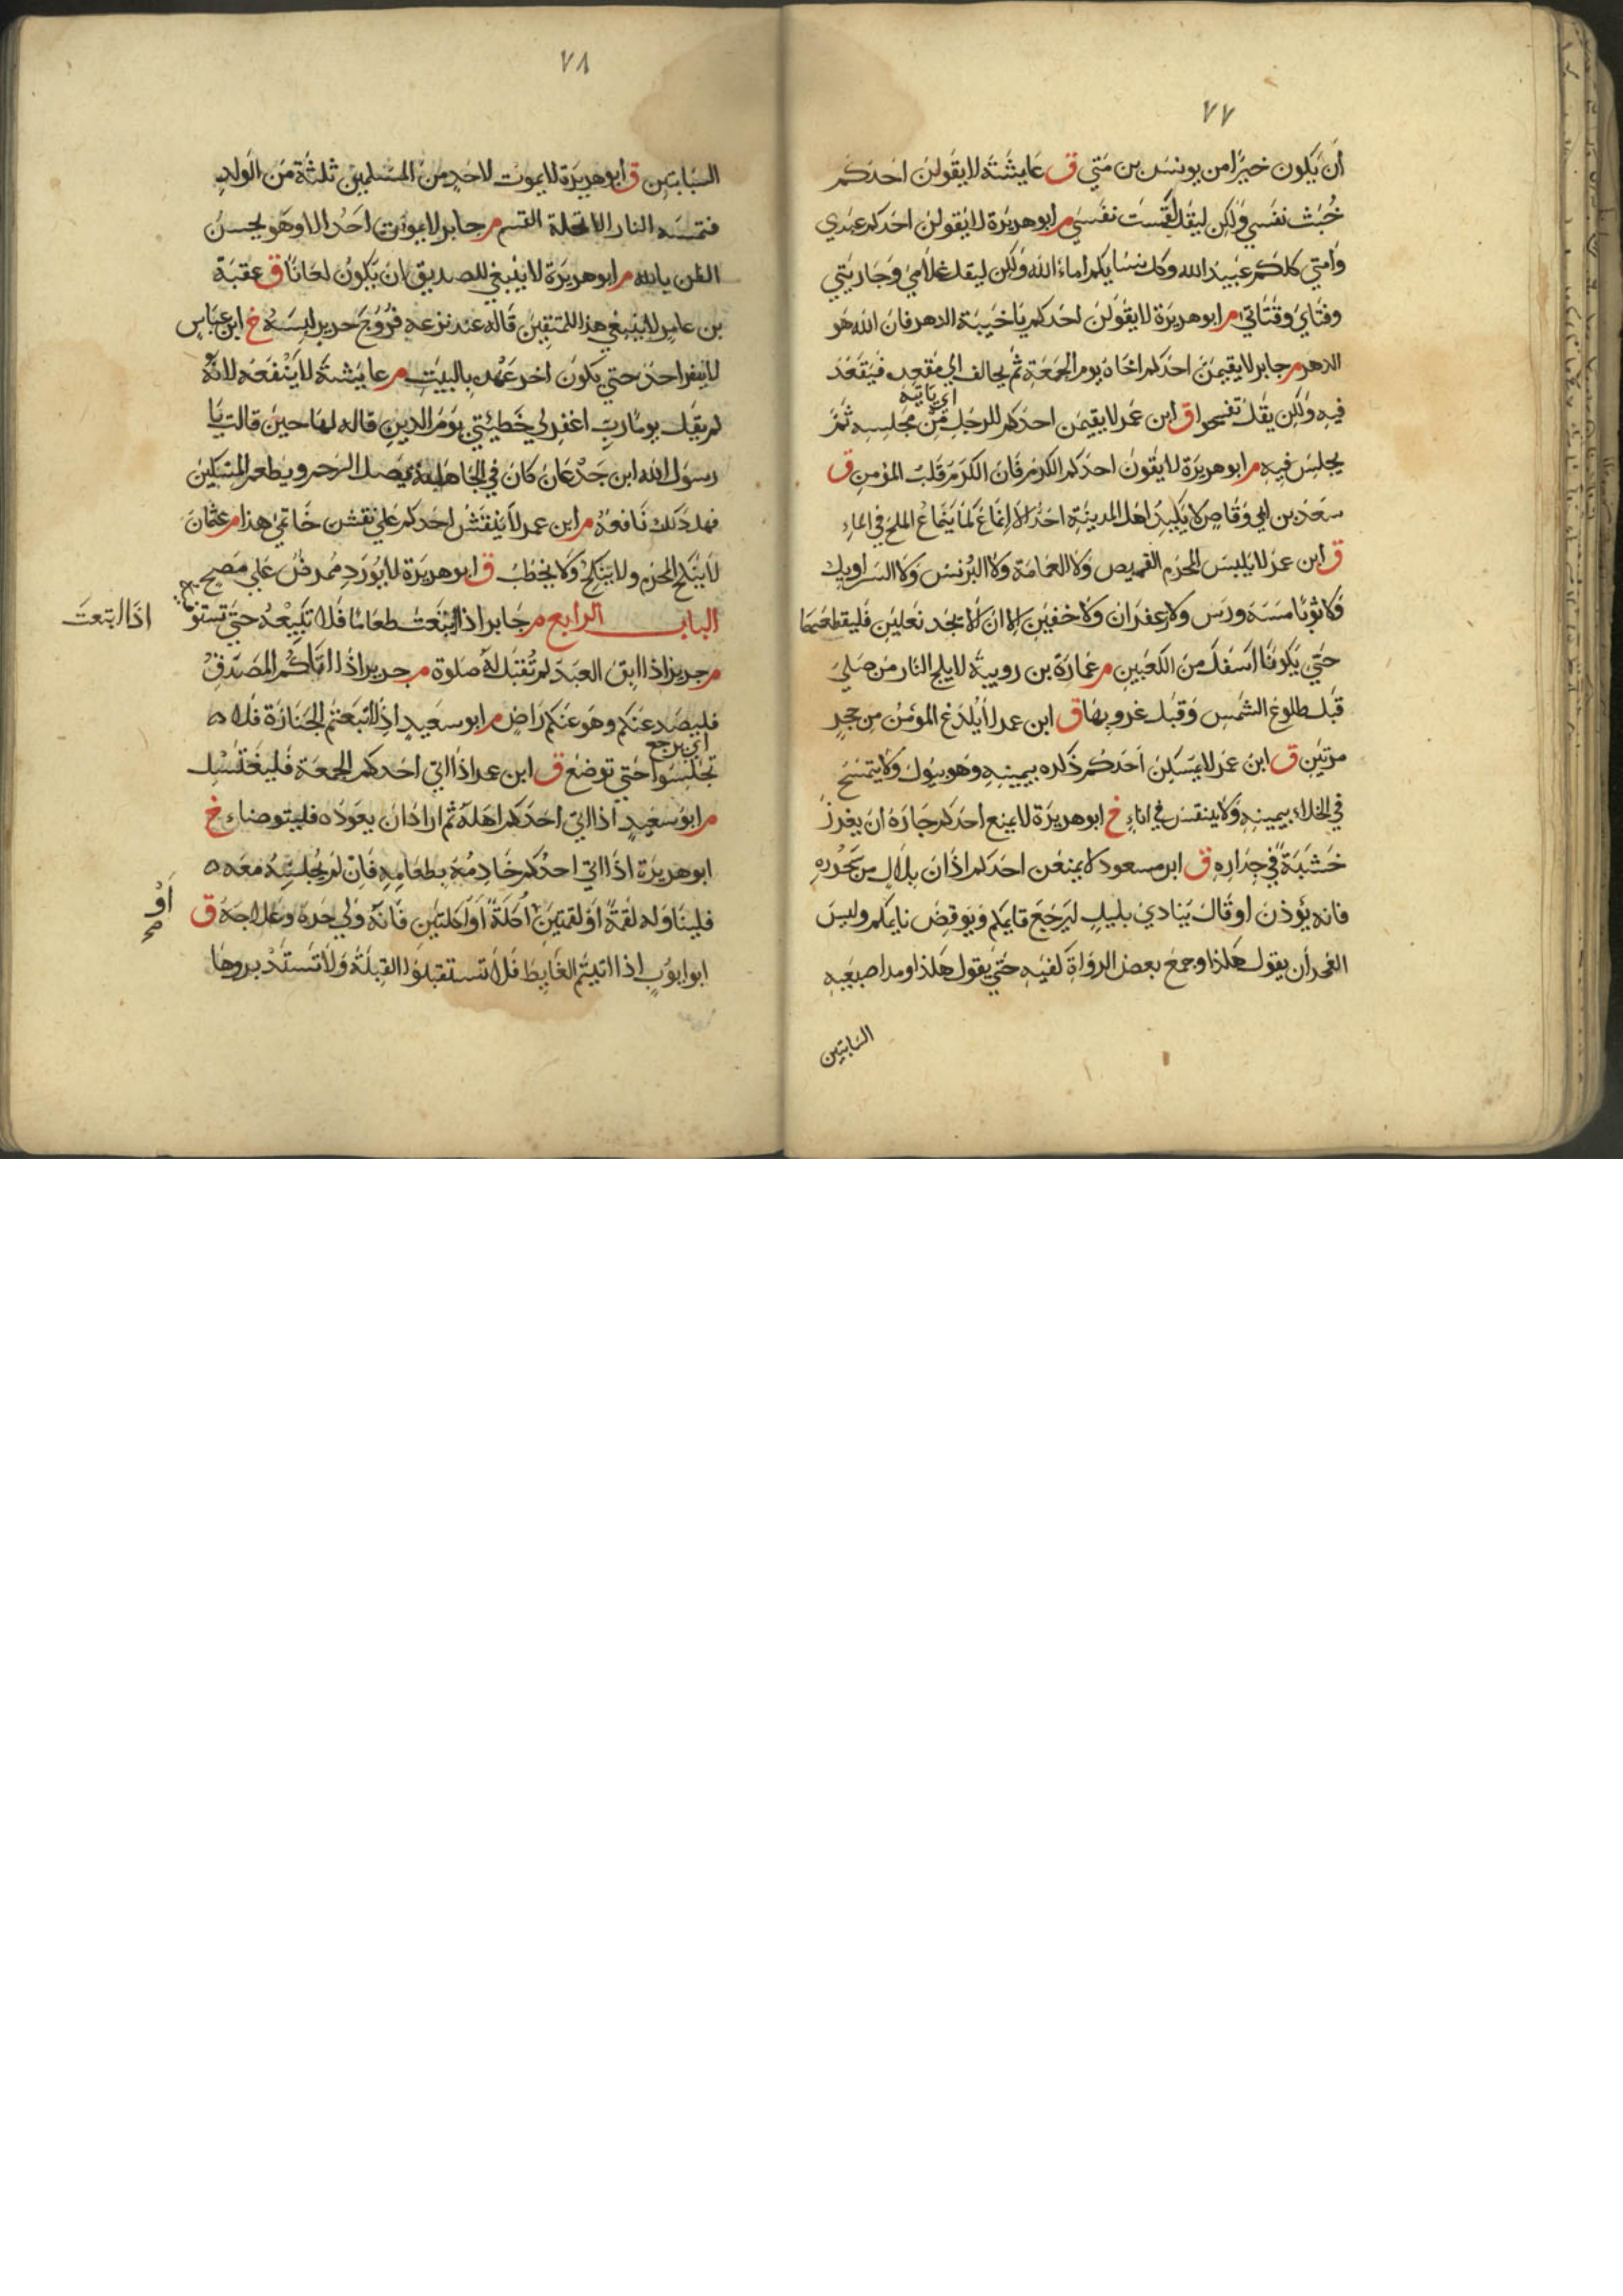 ٧٧
أن يكون خيرا من يونس بن متي ق عايشة لا يقولن احدكم
خبثت نفسي ولكن ليقل لقست نفسي م ابو هريرة لا يقولن احدكم عبدي
وامتي كلكم عبيد الله وكل نسايكم اماء الله ولكن ليقل غلامي وجاريتي
وفتاي وفتاتي م ابو هريرة لا يقولن احدكم يا خيبة الدهر فان الله هو
الدهر م جابر لا يقيمن احدكم اخاه يوم الجمعة ثم يخالف الي مقعده فيقعد
اي ياتيه
فيه ولكن يقل تفسحوا ق ابن عمر لا يقيمن احدكم الرجل من مجلسه ثم
يجلس فيه م ابو هريرة لا يقولن احدكم الكرم فان الكرم قلب المؤمن ق
سعد بن ابي وقاص لا يكيد اهل المدينة احد الا انماع كما ينماع الملح في الماء
ق ابن عمر لا يلبس المحرم القميص ولا العمامة ولا البرنس ولا السراويل
ولا ثوبا مسه ورس ولا زعفران ولا خفين الا ان لا يجد نعلين فليقطعهما
حتي يكونا اسفل من الكعبين م عمارة بن رويبة لا يلج النار من صلي
قبل طلوع الشمس وقبل غروبها ق ابن عمر لا يلدغ المؤمن من جحر
مرتين ق ابن عمر لا يمسكن احدكم ذكره بيمينه وهو يبول ولا يتمسح
في الخلاء بيمينه ولا يتنفس في اناء خ ابو هريرة لا يمنع احدكم جاره ان يغرز
خشبة في جداره ق ابن مسعود لا يمنعن احدكم اذان بلال من سحوره
فانه يؤذن او قال ينادي بليل ليرجع قايمكم ويوقض نايمكم وليس
الفجر أن يقول هكذا وجمع بعض الرواة كفيه حتي يقول هكذا ومد اصبعيه
السبابتين
٧٨
السبابتين ق ابو هريرة لا يموت لاحد من المسلمين ثلثة من الولد
فتمسه النار الا تحلة القسم م جابر لا يموتن احد الا وهو يحسن
الظن بالله م ابو هريرة لا ينبغي للصديق ان يكون لعانا ق عقبة
بن عامر لا ينبغي هذا للمتقين قاله عند نزعه فروج حرير لبسه خ ابن عباس
لا ينفر احد حتي يكون اخر عهده بالبيت م عايشة لا ينفعه لانه
لم يقل يوما رب اغفر لي خطيئتي يوم الدين قاله لها حين قالت يا
رسول الله ابن جدعان كان في الجاهلية يصل الرحم ويطعم المسكين
فهل ذلك نافعه م ابن عمر لا ينقش احدكم علي نقش خاتمي هذا م عثمان
لا ينكح المحرم ولا ينكح ولا يخطب ق ابو هريرة لا يورد ممرض علي مصح
الباب الرابع م جابر اذا ابتعت طعاما فلا تبيعه حتي تستوفيه
اذا ابتعت
م جرير اذا ابق العبد لم تقبل له صلوة م جرير اذا اتاكم المصدق
فليصدر عنكم وهو عنكم راض م ابو سعيد اذا اتبعتم الجنازة فلا
اي يرجع
تجلسوا حتي توضع ق ابن عمر اذا اتي احدكم الجمعة فليغتسل
م ابو سعيد اذا اتي احدكم اهله ثم اراد ان يعوده فليتوضاء خ
ابو هريرة اذا اتي احدكم خادمه بطعامه فان لم يجلسه معه
فليناوله لقمة او لقمتين اكلة او اكلتين فانه ولي حره وعلاجه ق
أو
صح
ابو ايوب اذا اتيتم الغايط فلا تستقبلوا القبلة ولا تستدبروها